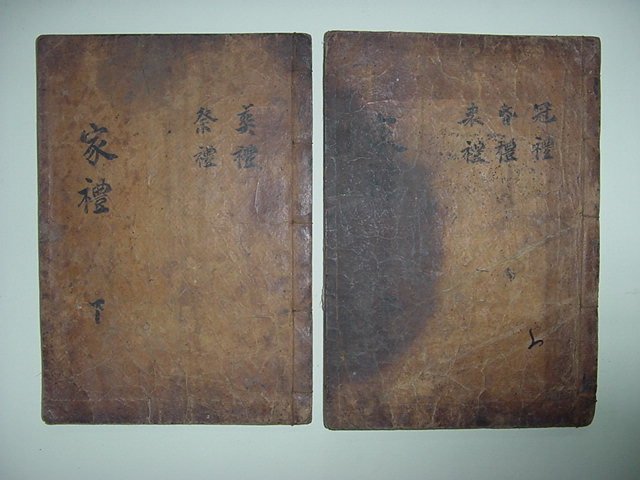 冠禮
昏禮
喪禮
上
葬禮
祭禮
家禮
下